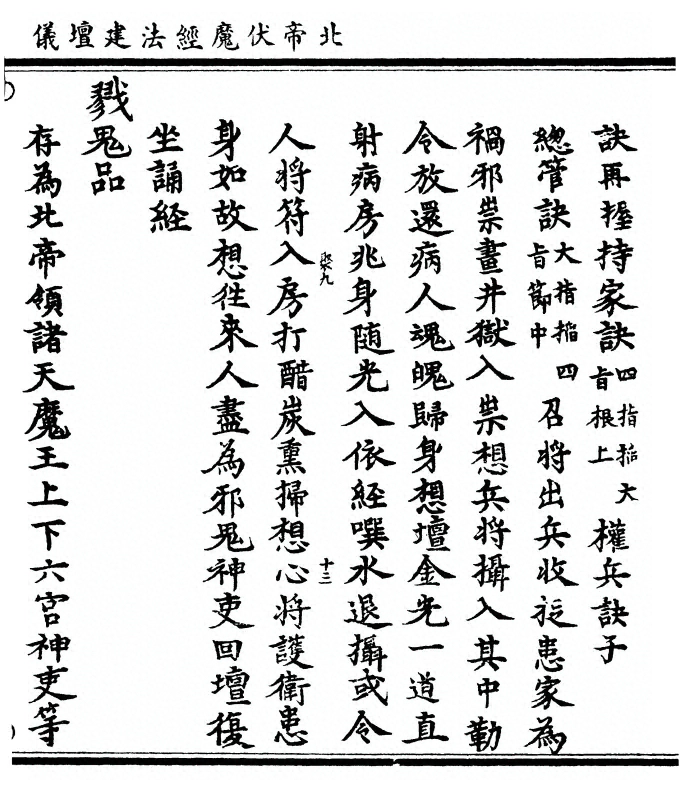 北帝伏魔經法建壇儀
訣再握持家訣四指掐大旨根上權兵訣子
總管訣大指掐四旨節中召将出兵收患家為
禍邪祟畫井獄入祟想兵将攝入其中勒
令放還病人魂魄歸身想壇金光一道直
射病房兆身随光入依經噀水退攝或令
九 十三
人将符入房打醋炭熏掃想心将護衛患
身如故想徃來人盡為邪鬼神吏回壇復
坐誦經
戮鬼品
存為北帝領諸天魔王上下六宮神吏等